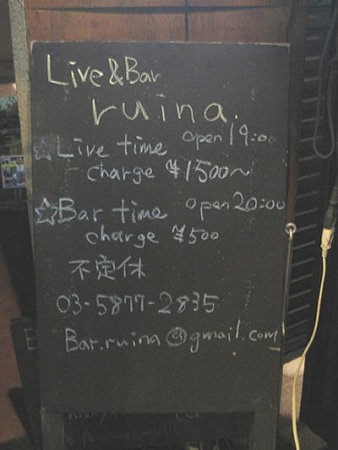 Live&Bar
ruina.
☆Live time open 19:00
charge ¥1500~
☆Bar time open 20:00
charge ¥500
不定休
03-5877-2835
Bar.ruina@gmail.com